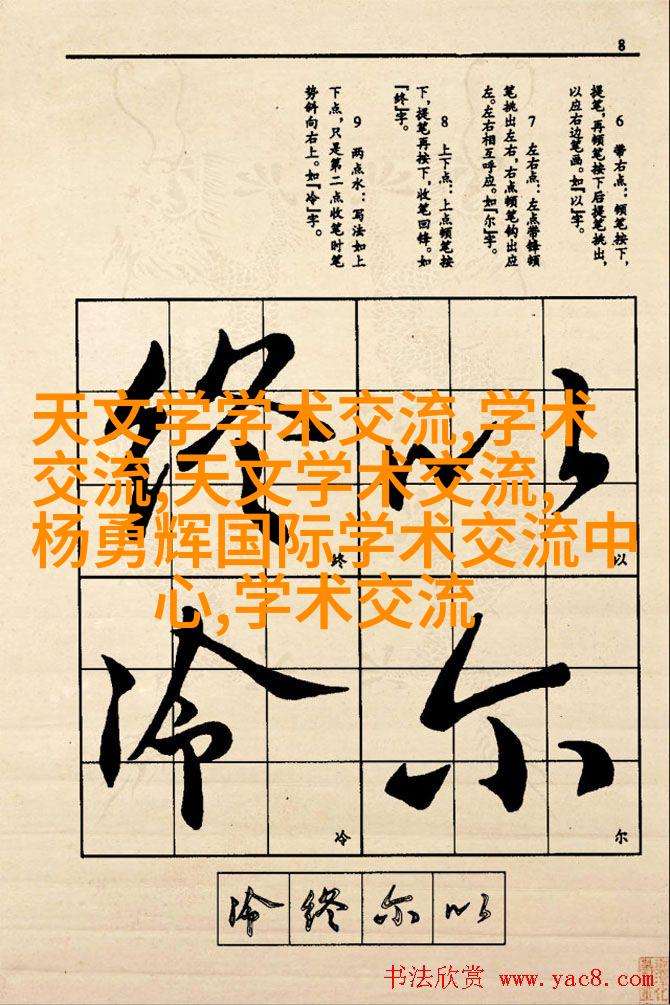 8
6 带右点：顿笔按下，
提笔，再顿笔按下后提笔挑出，
以应右边笔画。如『以』字。
7 左右点：左点带锋顿
笔挑出左右，右点顿笔钩出应
左。左右相互呼应。如『尔』字。
8 上下点：上点顿笔按
下，提笔再按下，收笔回锋。如
『终』字。
9 两点水：写法如上
下点，只是第二点收笔时笔
势斜向右上。如『冷』字。
以
以
终
终
天文学学术交流,学术
交流,天文学术交流,
杨勇辉国际学术交流中
心,学术交流
尔
尔
冷
冷
冷终尔以
书法欣赏 www.yac8.com